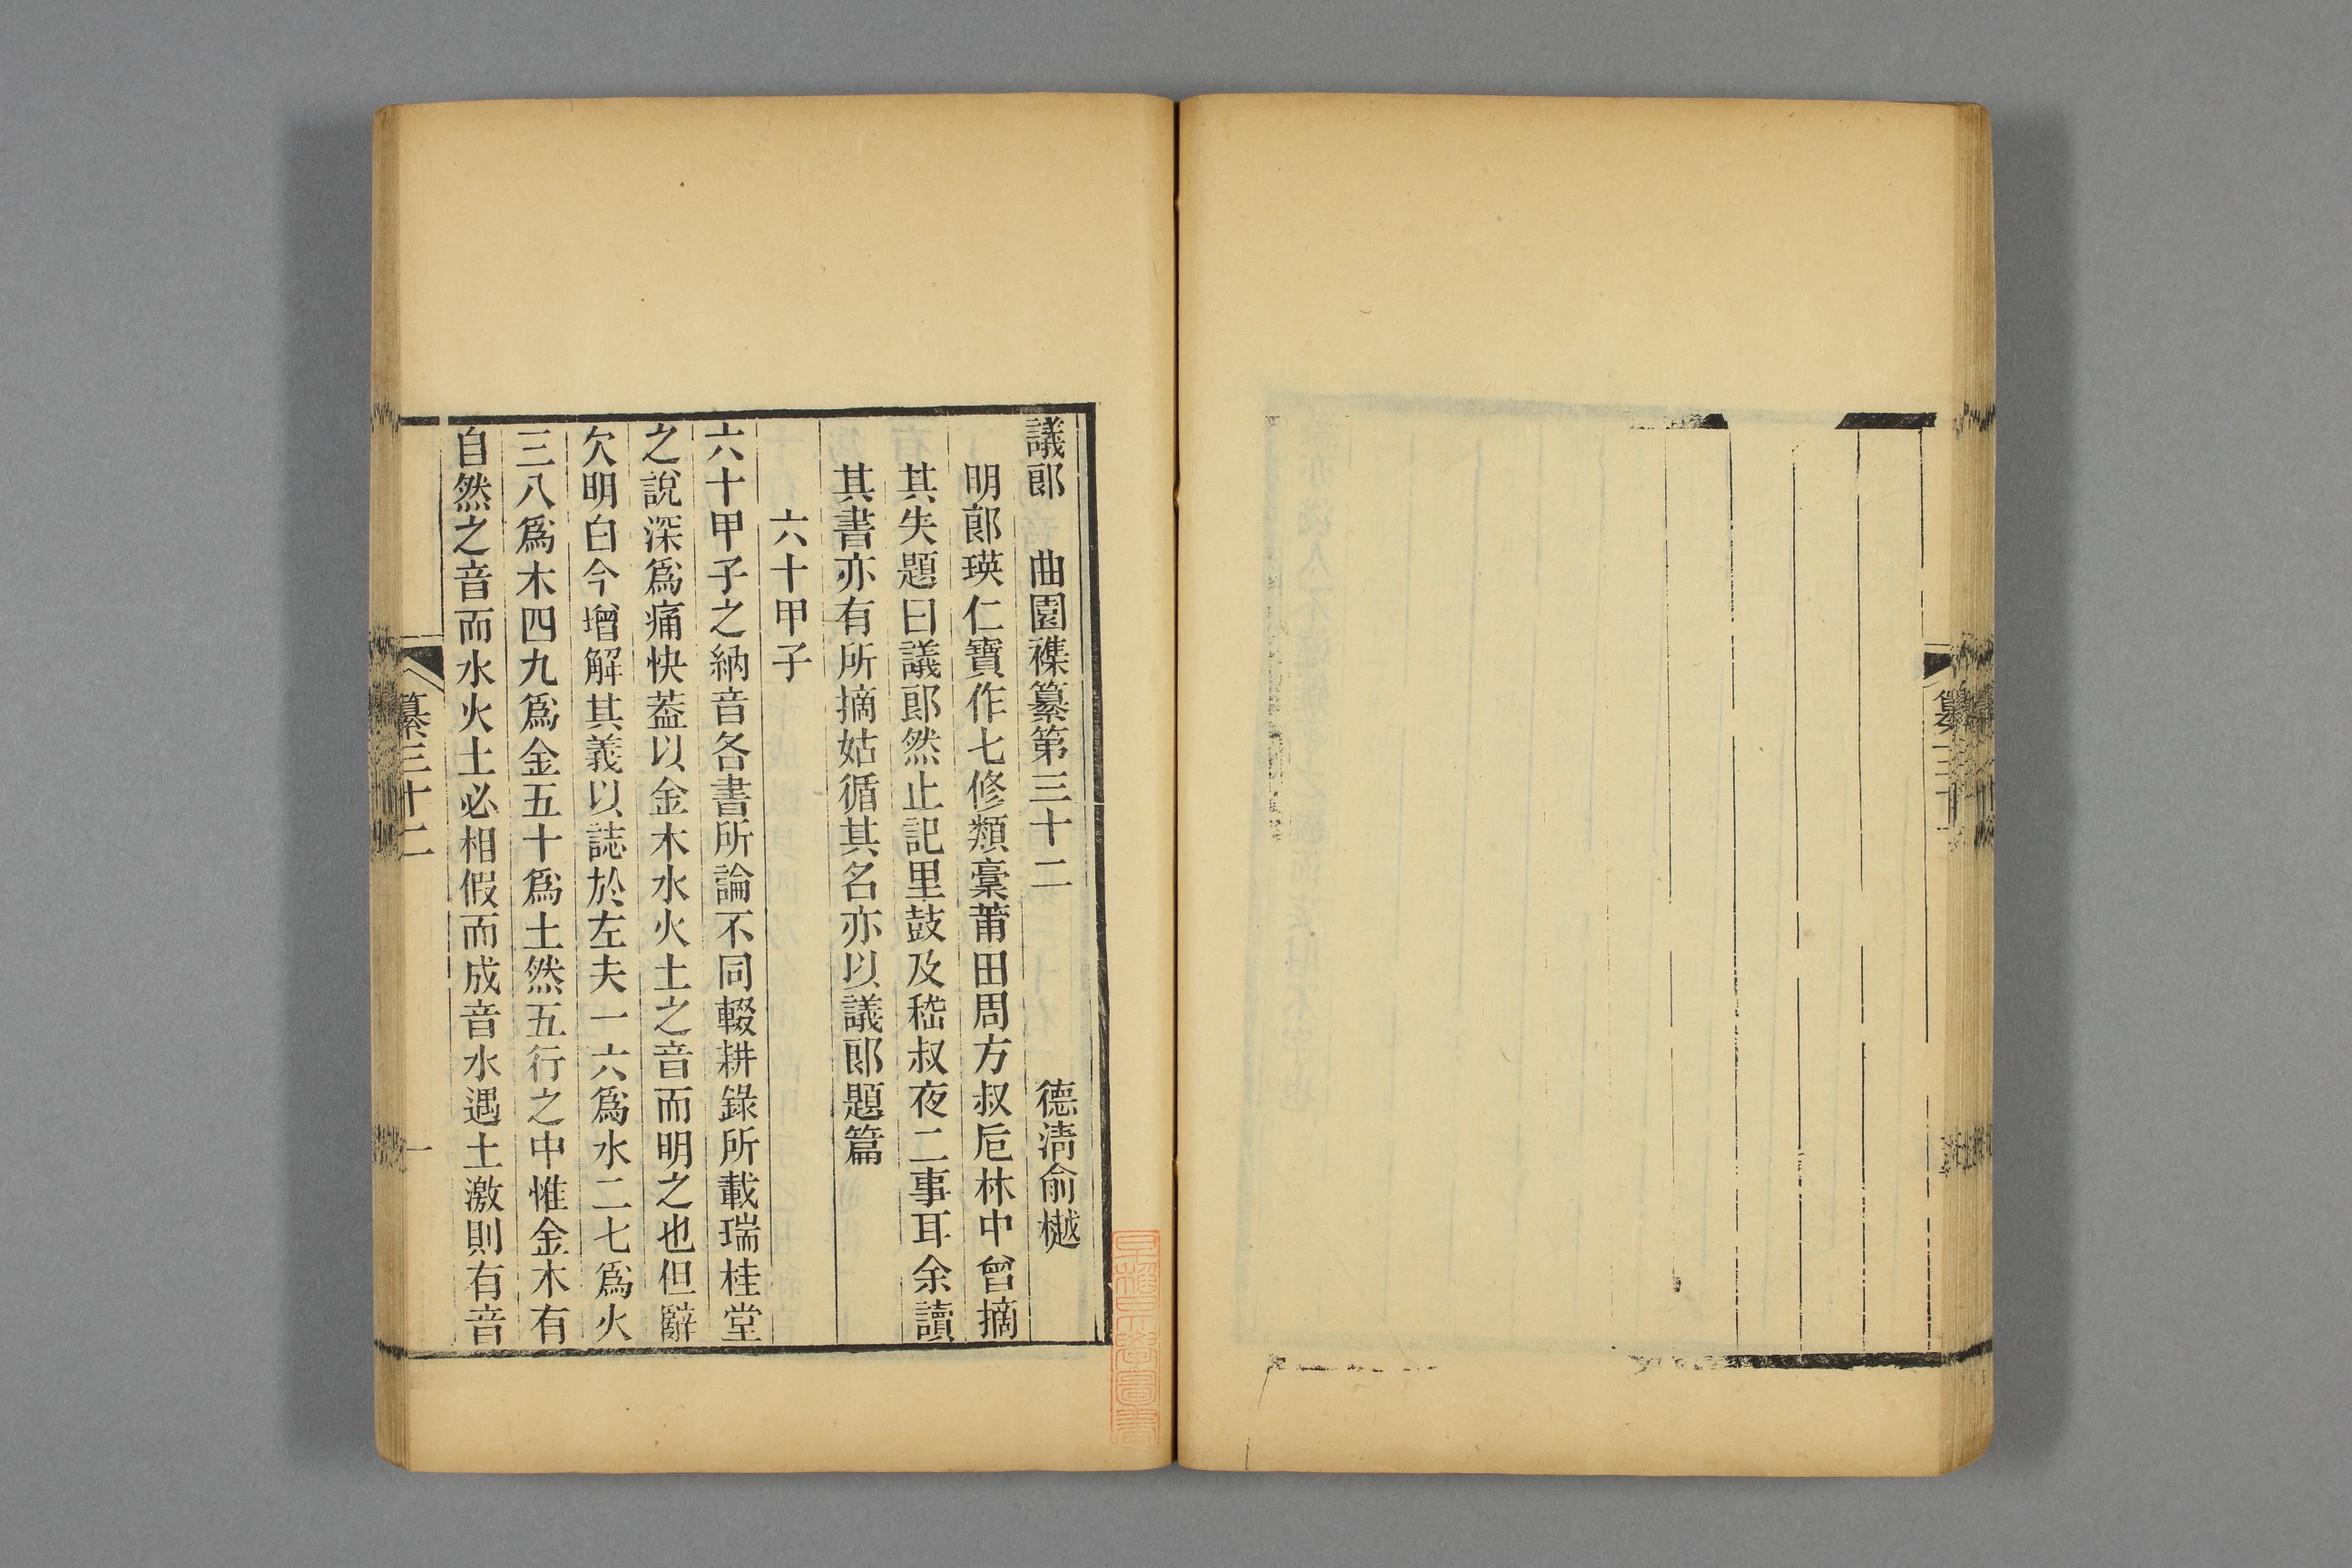 纂三十
議郞　曲園襍纂第三十二　德淸俞樾
明郞瑛仁寶作七修類稾莆田周方叔卮林中曾摘
其失題曰議郞然止記里鼓及嵇叔夜二事耳余讀
其書亦有所摘姑循其名亦以議郞題篇
六十甲子
六十甲子之納音各書所論不同輟耕錄所載瑞桂堂
之說深爲痛快葢以金木水火土之音而明之也但辭
欠明白今增解其義以誌於左夫一六爲水二七爲火
三八爲木四九爲金五十爲土然五行之中惟金木有
自然之音而水火土必相假而成音水遇土激則有音
纂三十二
一